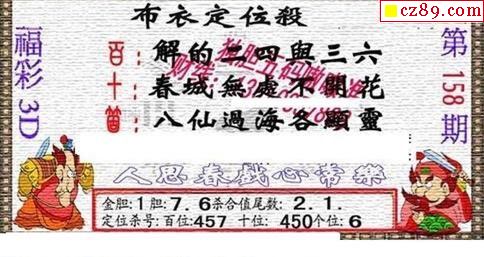 cz89.com
布衣定位殺
福彩3D
第158期
百十個:
解的二四與三六
春城無處不開花
八仙過海各顯靈
人思春戲心常樂
金胆:1胆:7.6杀合值尾数:2.1.
定位杀号:百位:457 十位:450个位:6